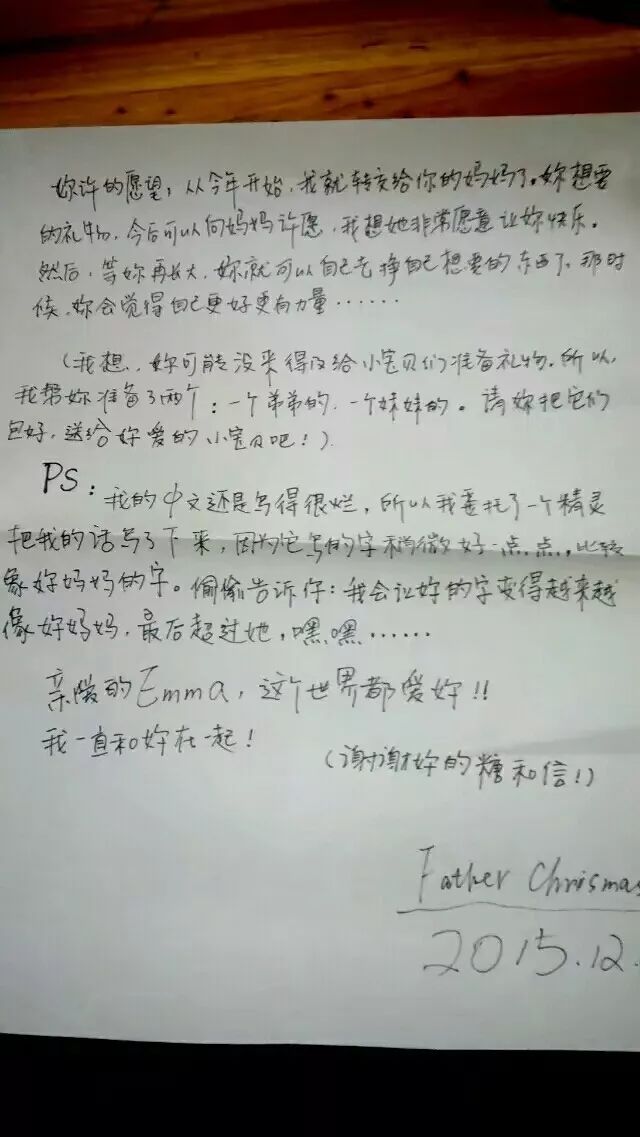 妳许的愿望，从今年开始，我就转交给你的妈妈了。妳想要
的礼物，今后可以向妈妈许愿，我想她非常愿意让妳快乐。
然后，等妳再长大，妳就可以自己去挣自己想要的东西了，那时
候，妳会觉得自己更好更有力量……
（我想，妳可能没来得及给小宝贝们准备礼物，所以，
我帮妳准备了两个：一个弟弟的，一个妹妹的。请妳把它们
包好，送给妳爱的小宝贝吧！）
PS：我的中文还是写得很烂，所以我委托了一个精灵
把我的话写了下来，因为它写的字稍微好一点点，比较
像妳妈妈的字。偷偷告诉你：我会让妳的字变得越来越
像妳妈妈，最后超过她，嘿嘿……
亲爱的Emma，这个世界都爱妳！！
我一直和妳在一起！
（谢谢妳的糖和信！）
Father Chrismas
2015.12.